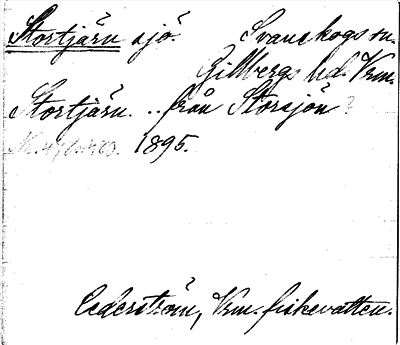 Stortjärn sjö. Svanskogs sn.
Gillbergs hd. Vrm.
Stortjärn. .. från Storsjön?
1895.
Cederström, Vrm. fiskevatten.